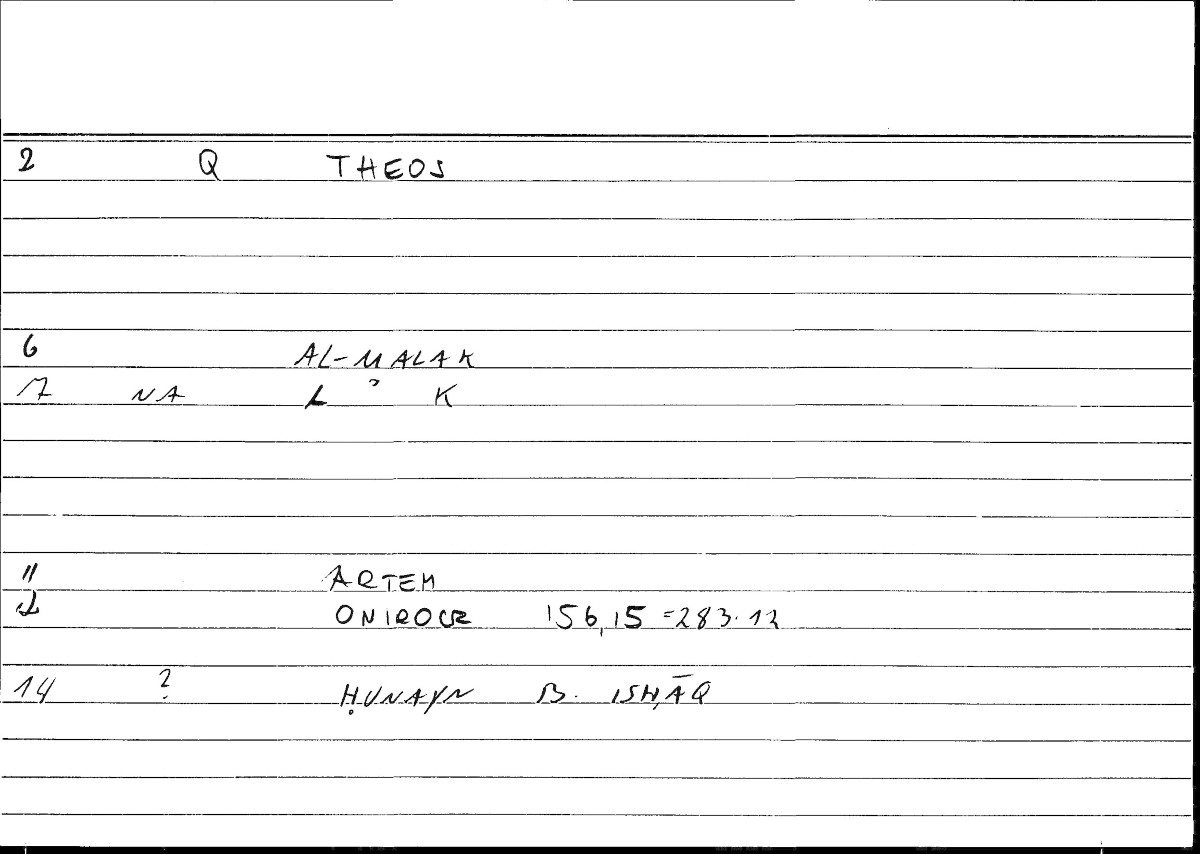 2 Q THEOS
6 AL-MALAK
7 NA L ʾ K
11 ARTEM
ONIROCR 156,15 =283.12
14 ? ḤUNAYN B. ISḤĀQ